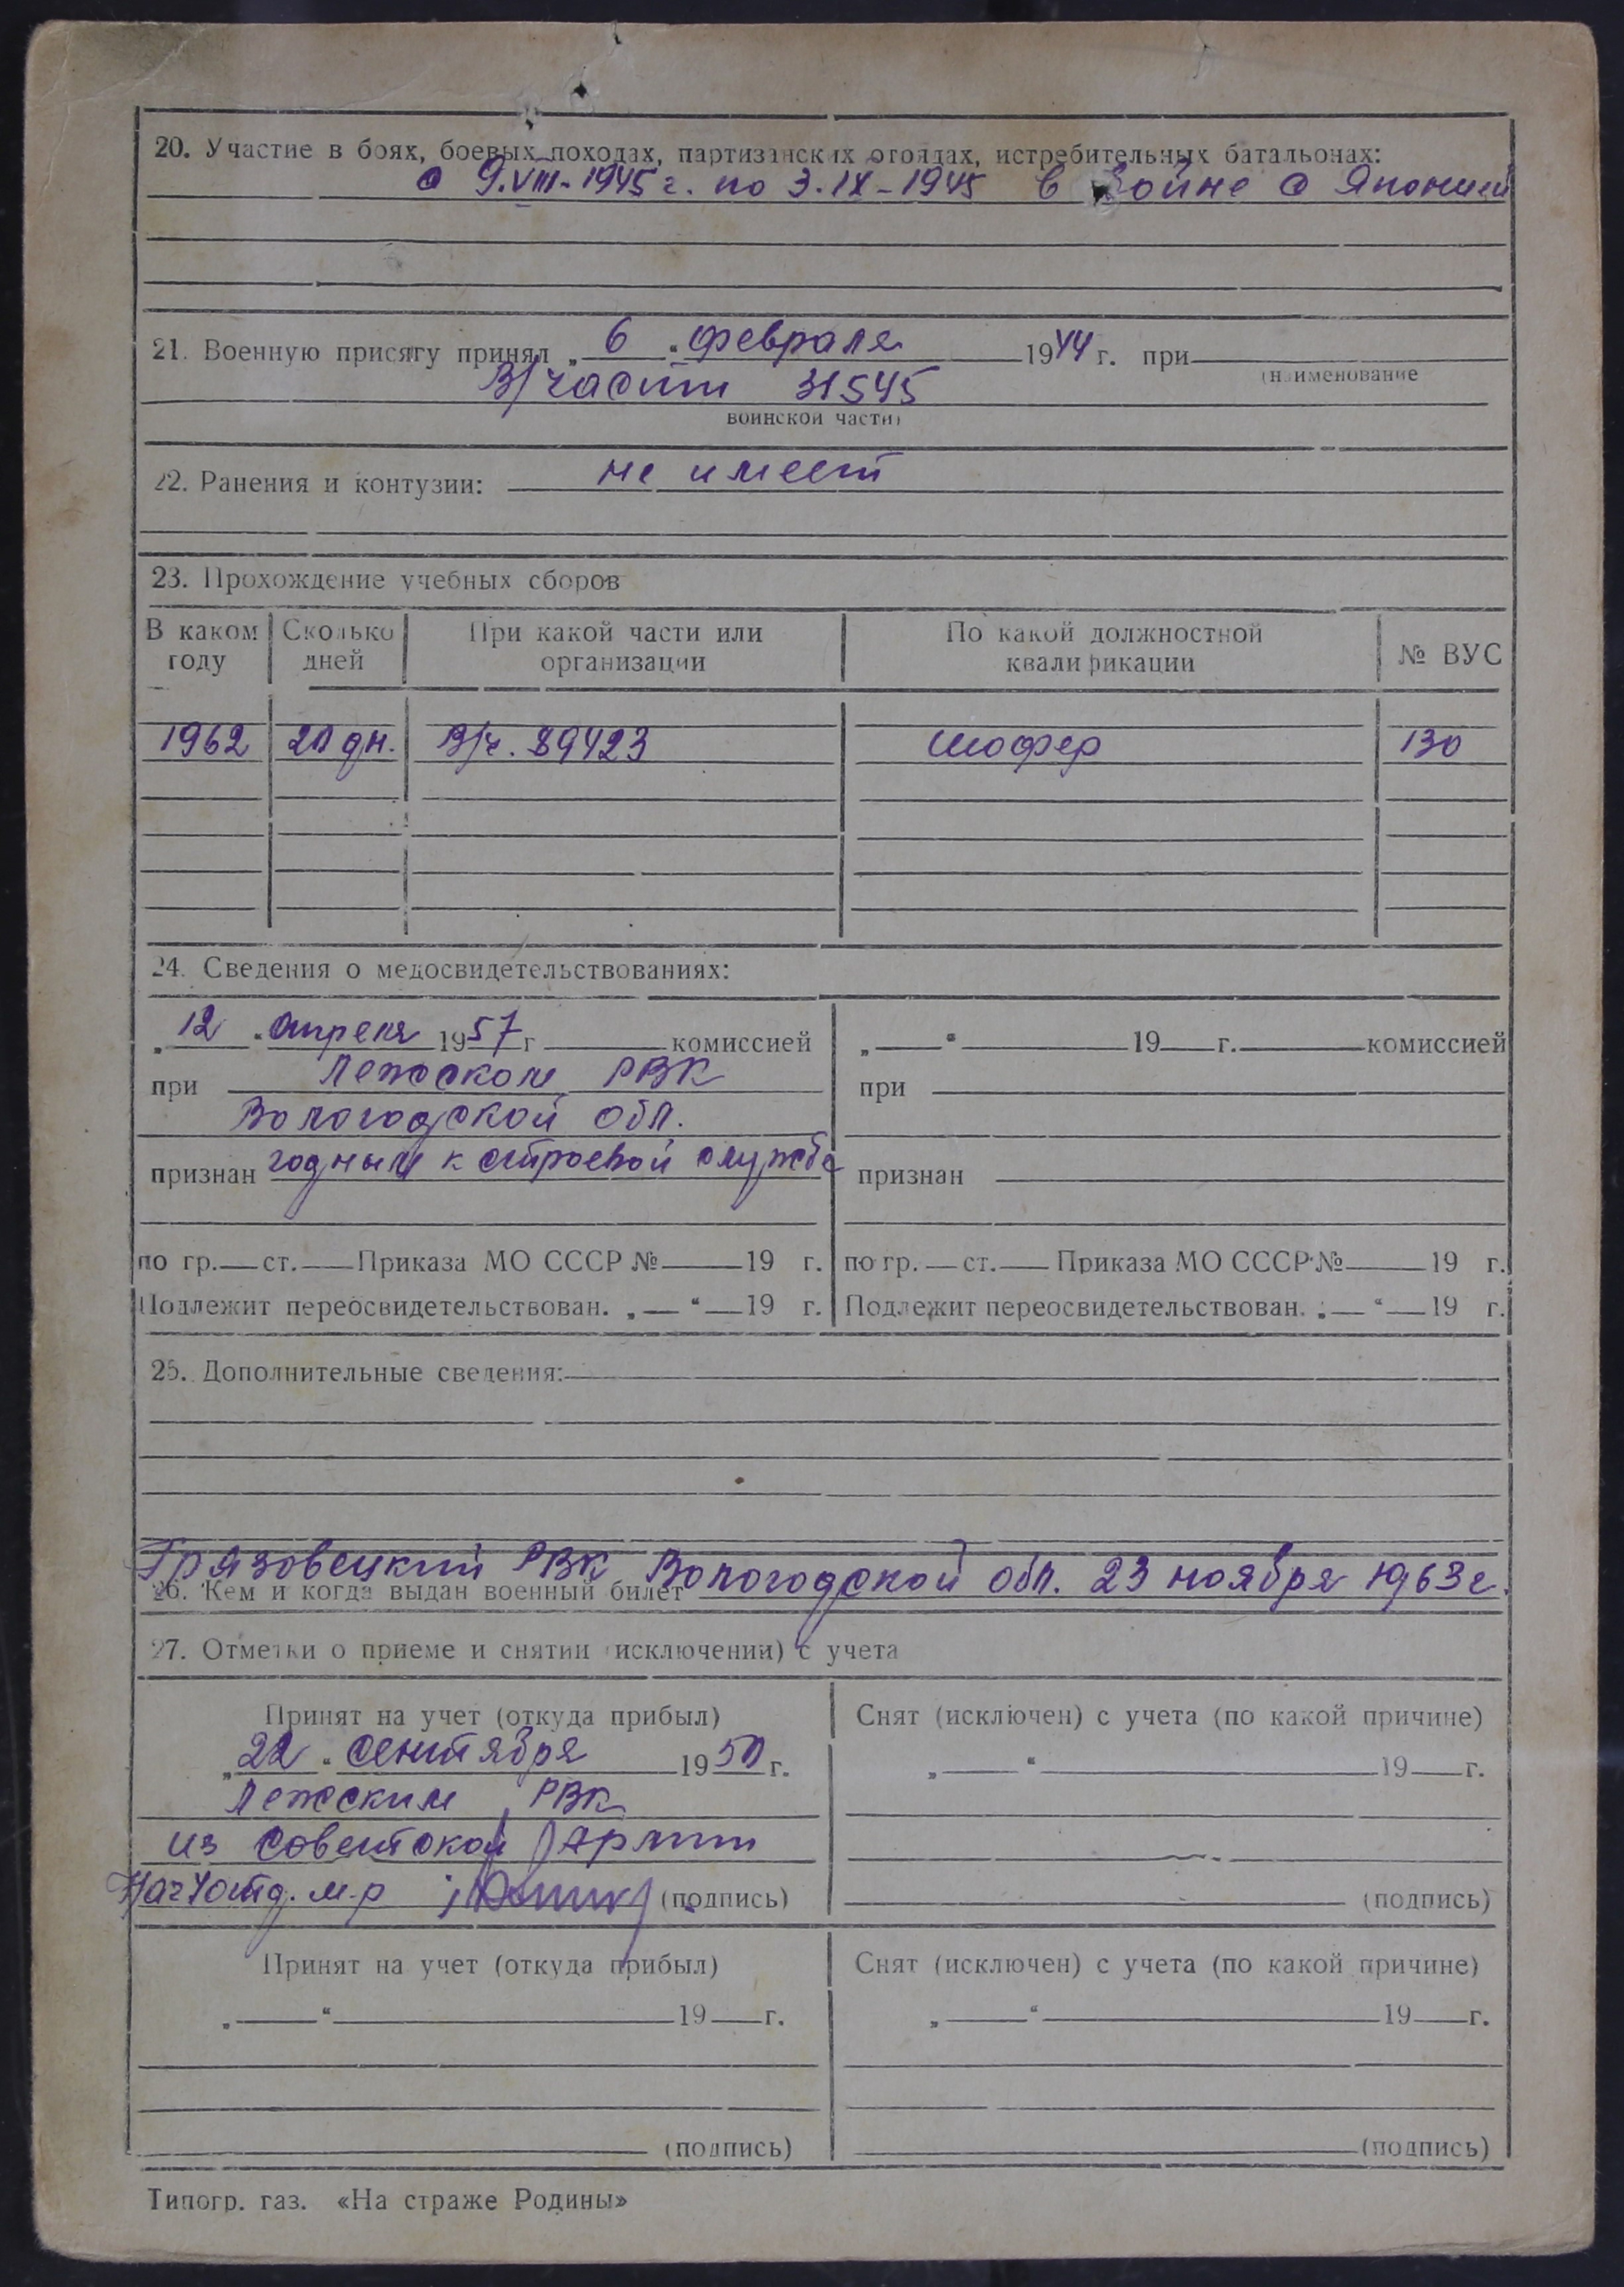 20. Участие в боях, боевых походах, партизанских отрядах, истребительных батальонах:
с 9.VIII-1945 г. по 3.IX-1945 в войне с Японией
21. Военную присягу принял „ 6 “ февраля 1944 г. при
(наименование
В/части 31545
воинской части)
22. Ранения и контузии: не имеет
23. Прохождение учебных сборов
В каком году Сколько дней При какой части или организации По какой должностной квалификации № ВУС
1962 20 дн. В/ч. 89423 шофер 130
24. Сведения о медосвидетельствованиях:
„ 12 “ апреля 1957 г комиссией „ “ 19 г. комиссией
при Лежском РВК при
Вологодской обл.
признан годным к строевой службе признан
по гр. ст. Приказа МО СССР № 19 г. по гр. ст. Приказа МО СССР № 19 г.
Подлежит переосвидетельствован. „ “ 19 г. Подлежит переосвидетельствован. „ “ 19 г.
25. Дополнительные сведения:
Грязовецкий РВК Вологодской обл. 23 ноября 1963 г.
26. Кем и когда выдан военный билет
27. Отметки о приеме и снятии (исключении) с учета
Принят на учет (откуда прибыл) Снят (исключен) с учета (по какой причине)
„ 22 “ сентября 1950 г. „ “ 19 г.
Лежским РВК
из Советской Армии
м-р (подпись) (подпись)
Принят на учет (откуда прибыл) Снят (исключен) с учета (по какой причине)
„ “ 19 г. „ “ 19 г.
(подпись) (подпись)
Типогр. газ. «На страже Родины»